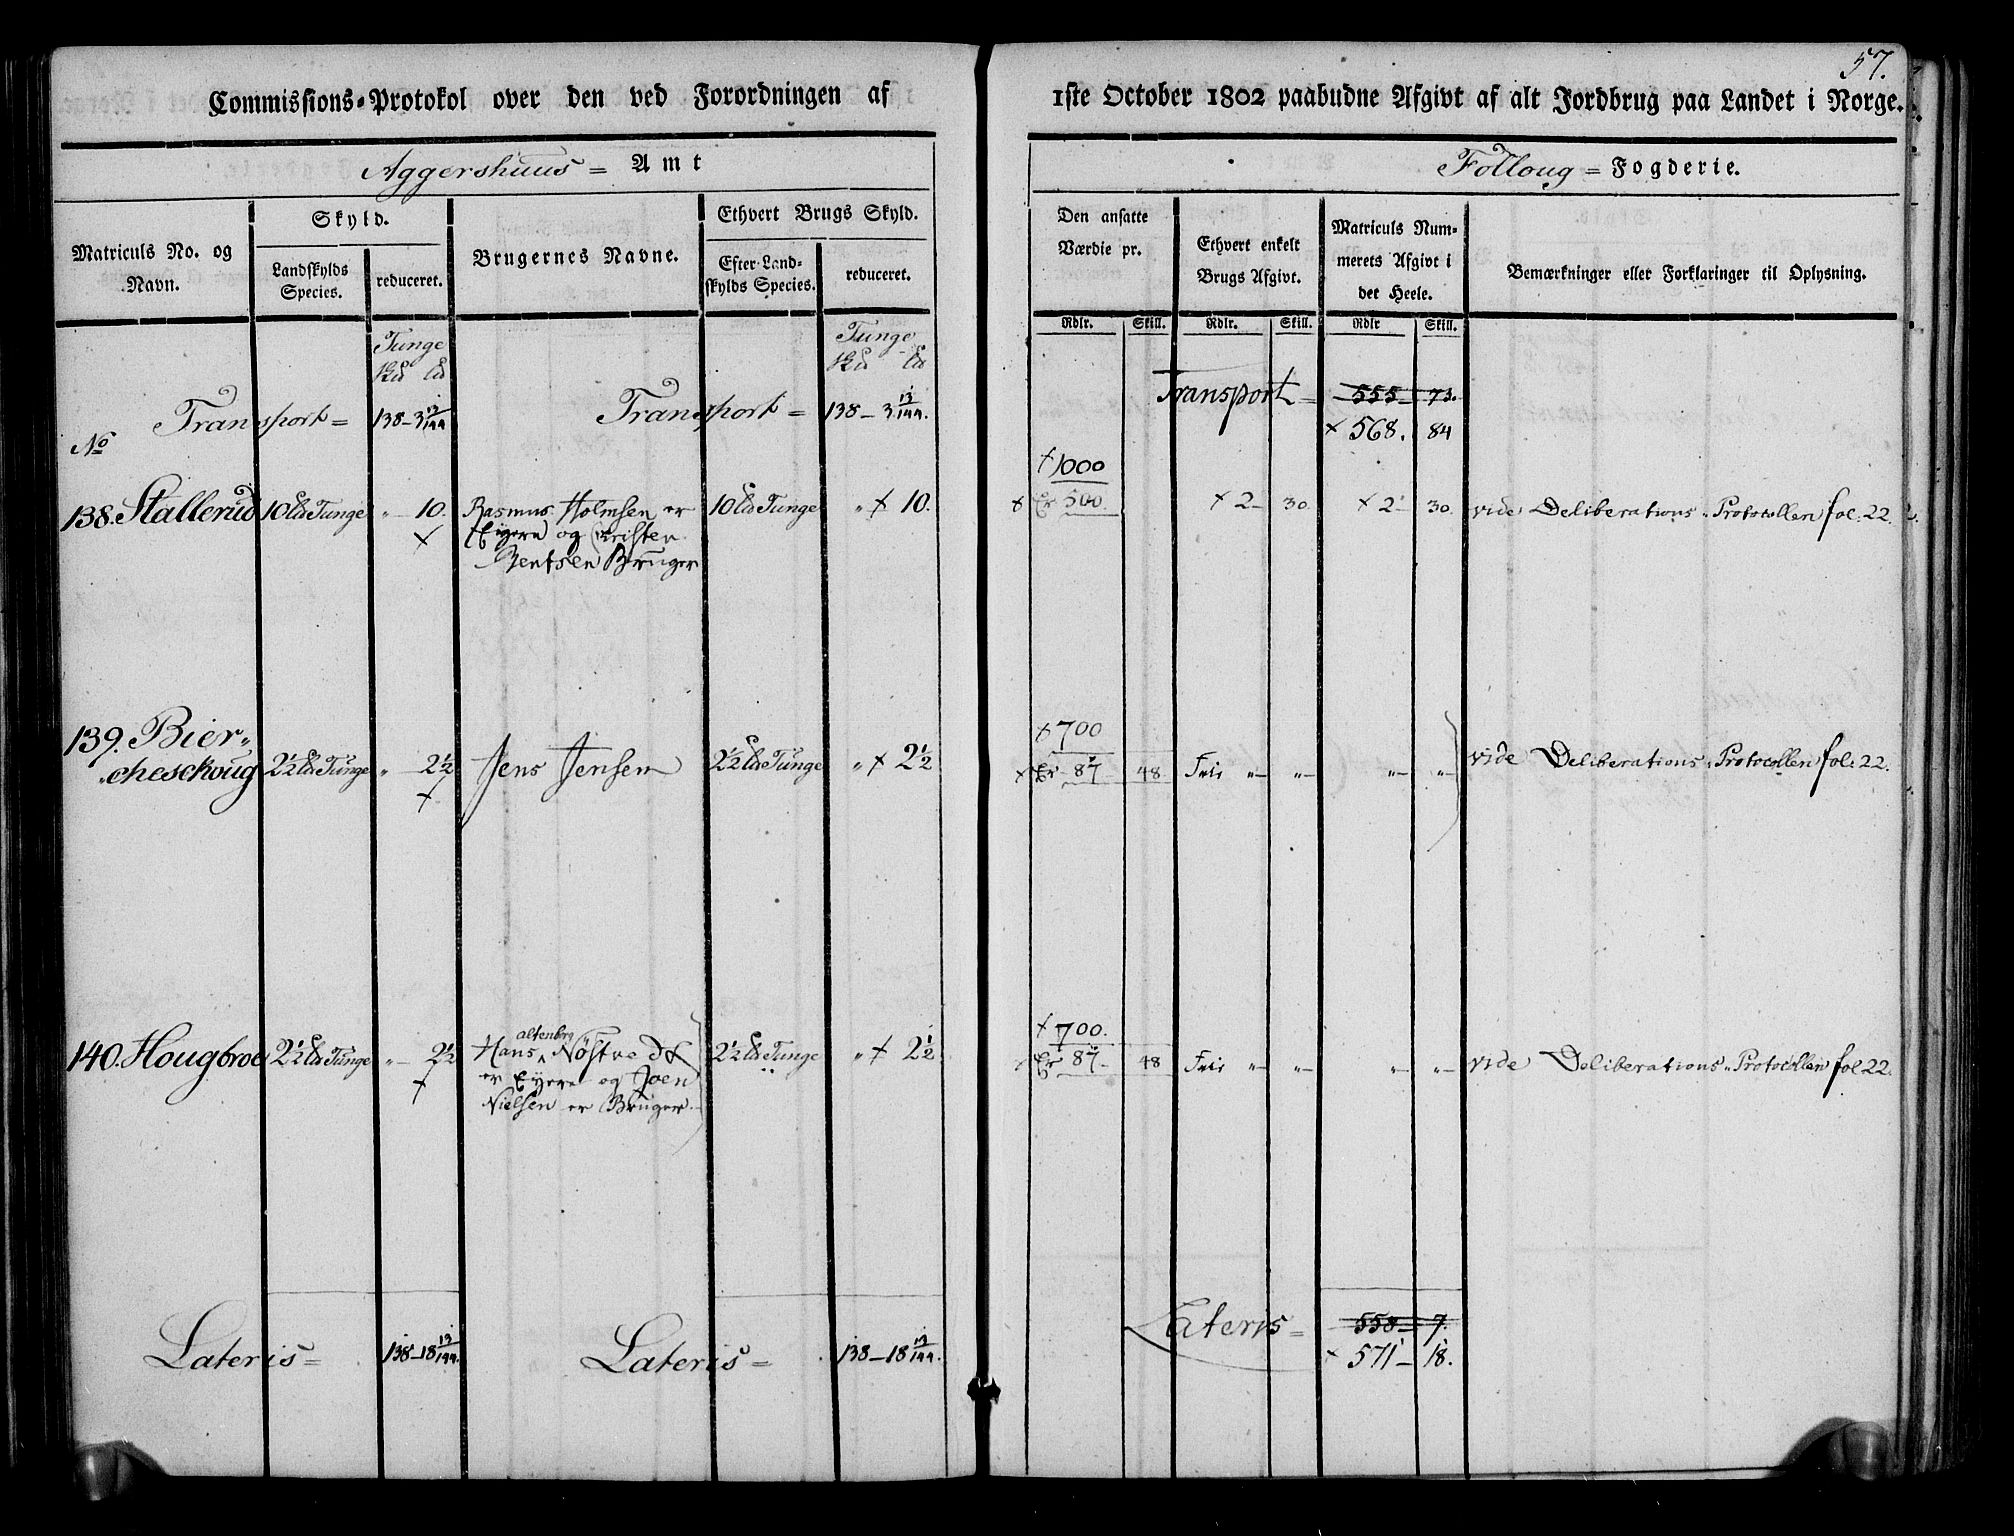 57.
Commissions-Protokol over den ved Forordningen af 1ste October 1802 paabudne Afgivt af alt Jordbrug paa Landet i Norge.
Aggershuus = Amt
Folloug = Fogderie.
Matriculs No. og Navn.
Skyld.
Landskylds Species.
reduceret.
Brugernes Navne.
Ethvert Brugs Skyld.
Efter Land-skylds Species.
reduceret.
Den ansatte Værdie pr.
Ethvert enkelt Brugs Afgivt.
Matriculs Num-merets Afgivt i det Heele.
Bemærkninger eller Forklaringer til Oplysning.
Rdlr. Skill. Rdlr. Skill. Rdlr Skill.
Tunge
Tunge
Transport = 138-3 13/144 Transport = 138-3 13/144. Transport = 555- 73.
× 568. 84
No
× 1000
138. Stallerud 10 Tunge „ 10. Rasmus Holmsen er 10 Tunge „ × 10. × Er 500. × 2- 30 × 2- 30. vide Deliberations Protocollen fol: 22.
× Eyere og Christen
Bentsen Bruger
139. Bier- × 700
cheschoug 2½ Tunge „ 2½ Jens Jensen 2½ Tunge „ × 2½ × Er 87 48 Frie „ „ „ „ vide Deliberations Protocollen fol: 22.
×
altenborg × 700.
140. Hougbroe 2½ Tunge „ 2½ Hans Nøstve er 2½ Tunge „ × 2½ × Er 87. 48 Frie „ „ „ „ vide Deliberations Protocollen fol 22.
× er Eyere og Joen
Nielsen er Bruger
Lateris = 138-18 13/144. Lateris = 138-18 13/144. Lateris = 558- 7.
× 571- 18.